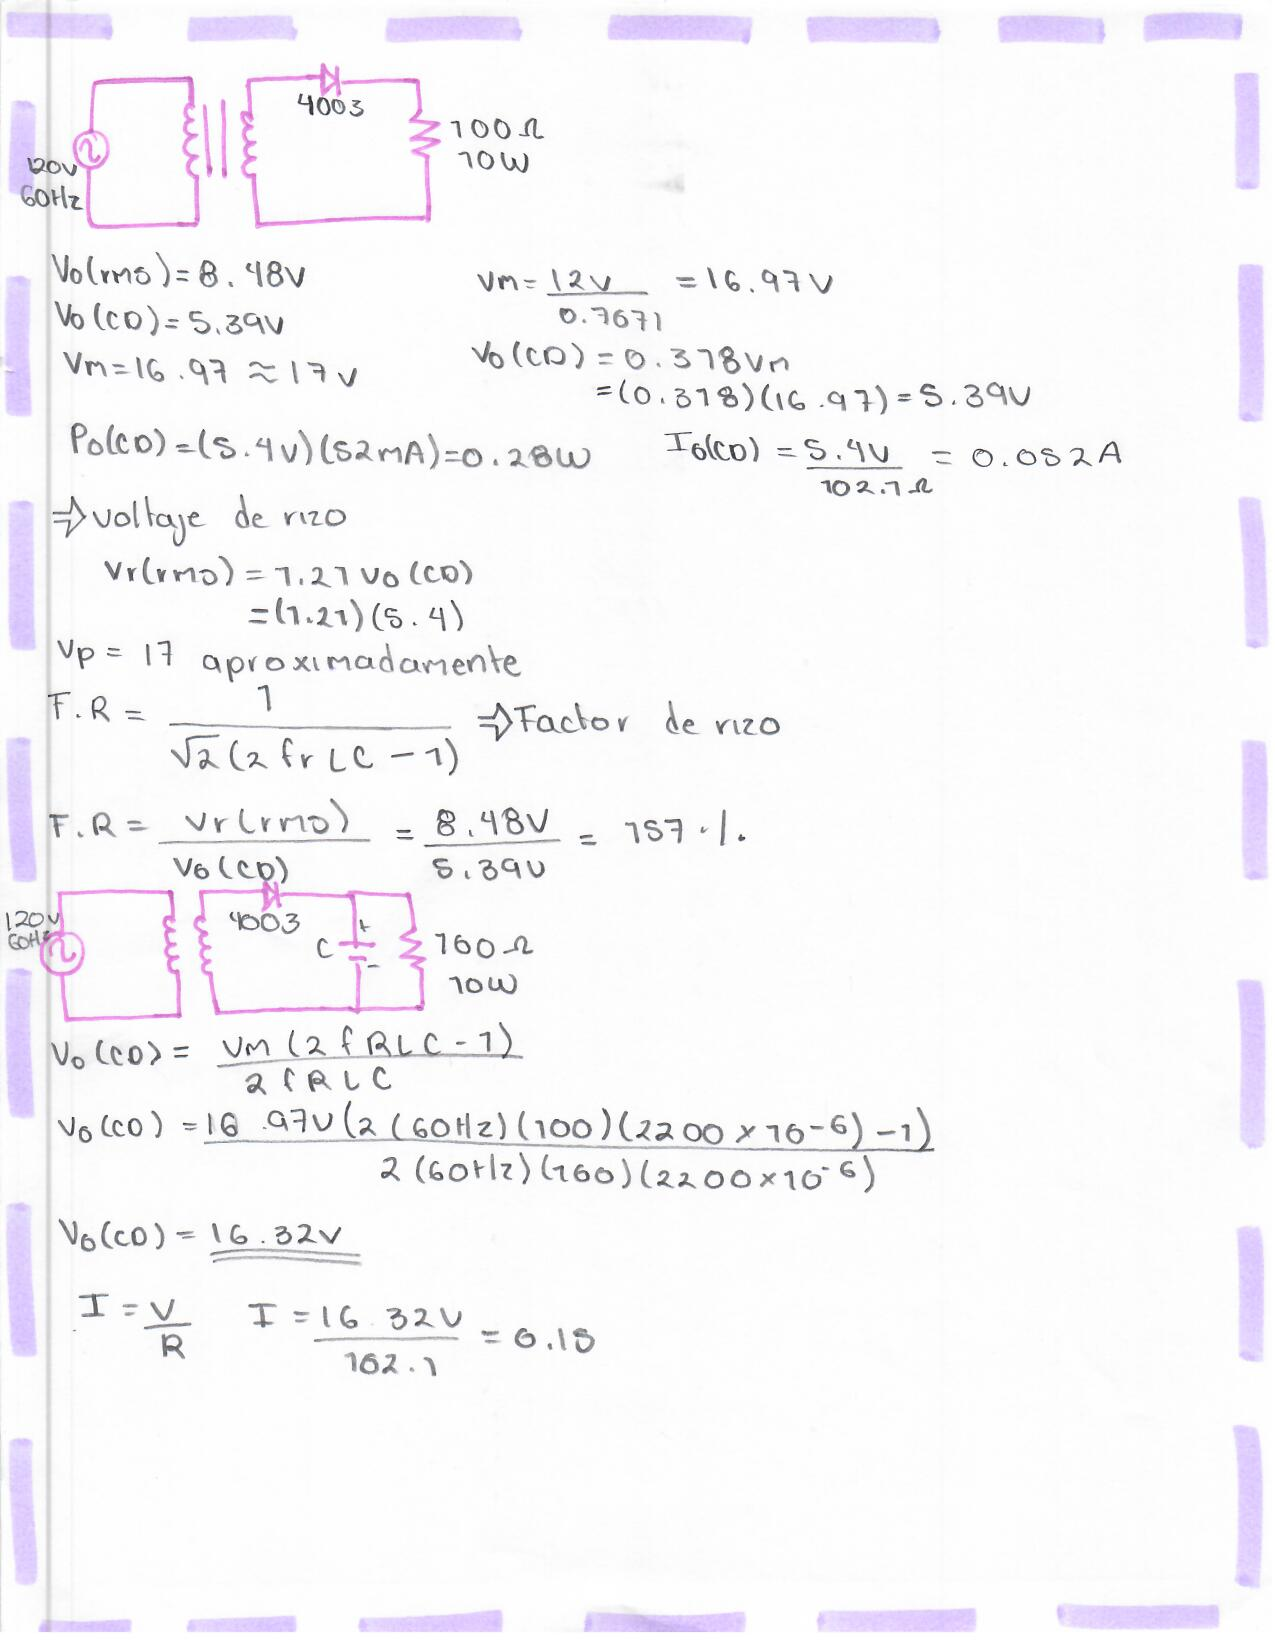 4003
100Ω
10W
120V
60Hz
Vo(rms)=8.48V
Vm= 12V / 0.7071 = 16.97V
Vo(CD)=5.39V
Vm=16.97 ≈ 17V
Vo(CD)=0.318Vm
=(0.318)(16.97)=5.39V
Po(CD)=(5.4V)(52mA)=0.28W
Io(CD) = 5.4V / 102.1Ω = 0.052A
⇒ voltaje de rizo
Vr(rms) = 1.21 Vo(CD)
=(1.21)(5.4)
Vp = 17 aproximadamente
F.R = 1 / √2(2frLC-1) ⇒ Factor de rizo
F.R = Vr(rms) / Vo(CD) = 8.48V / 5.39V = 157%
120V
60Hz
4003
C
+
-
100Ω
10W
Vo(CD) = Vm(2fRLC-1) / 2fRLC
Vo(CD) = 16.97V(2(60Hz)(100)(2200×10-6)-1) / 2(60Hz)(100)(2200×10-6)
Vo(CD) = 16.32V
I = V / R I = 16.32V / 102.1 = 0.15